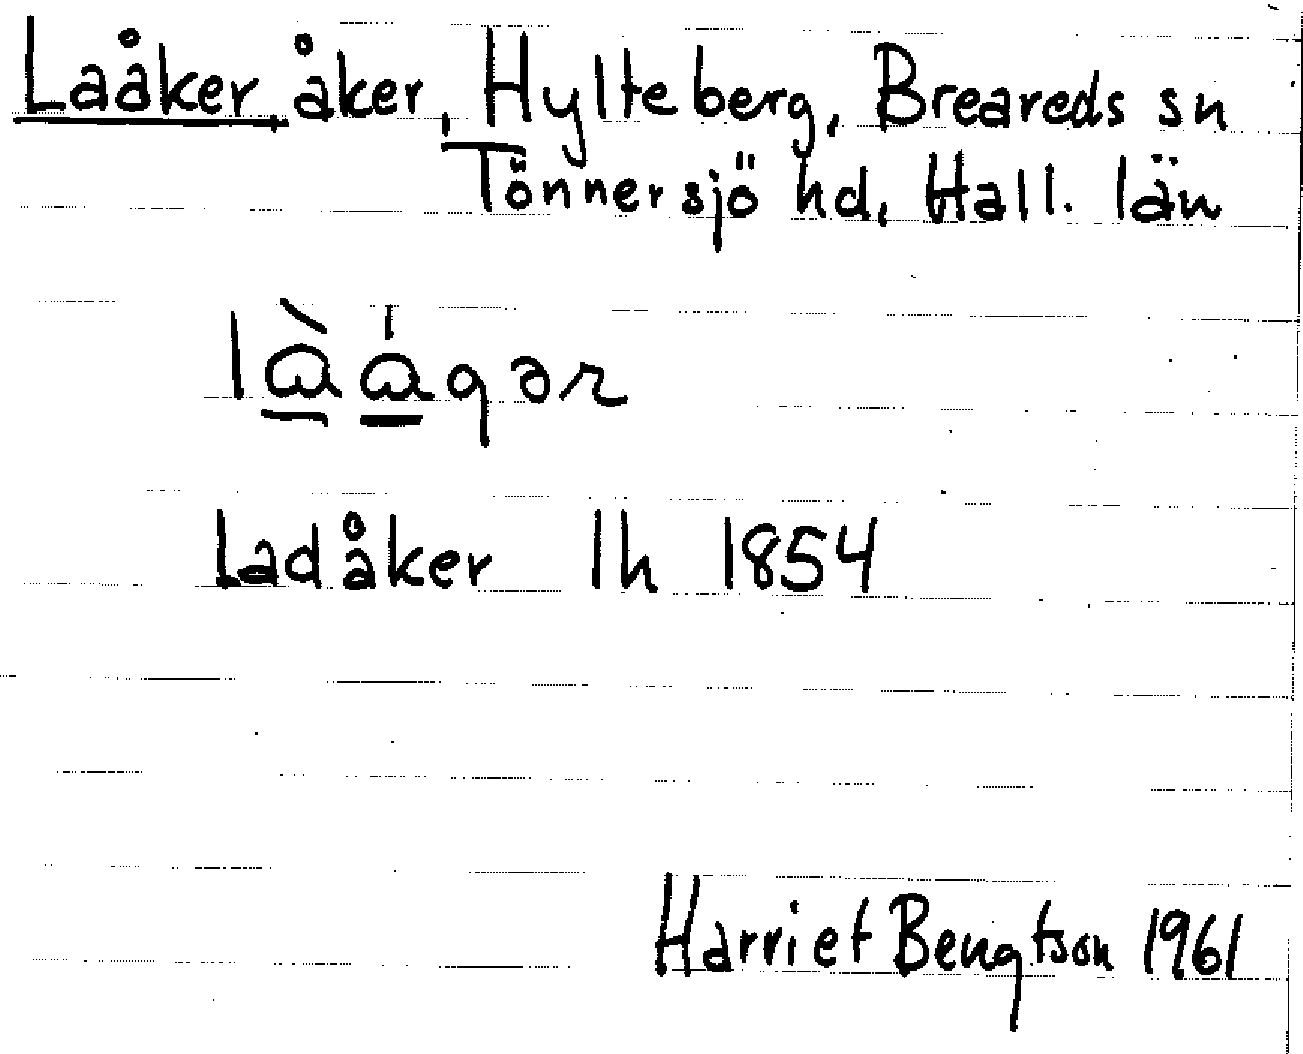 Laåker, åker, Hylteberg, Breareds sn
Tönnersjö hd, Hall. län
Ladåker lh 1854
Harriet Bengtson 1961